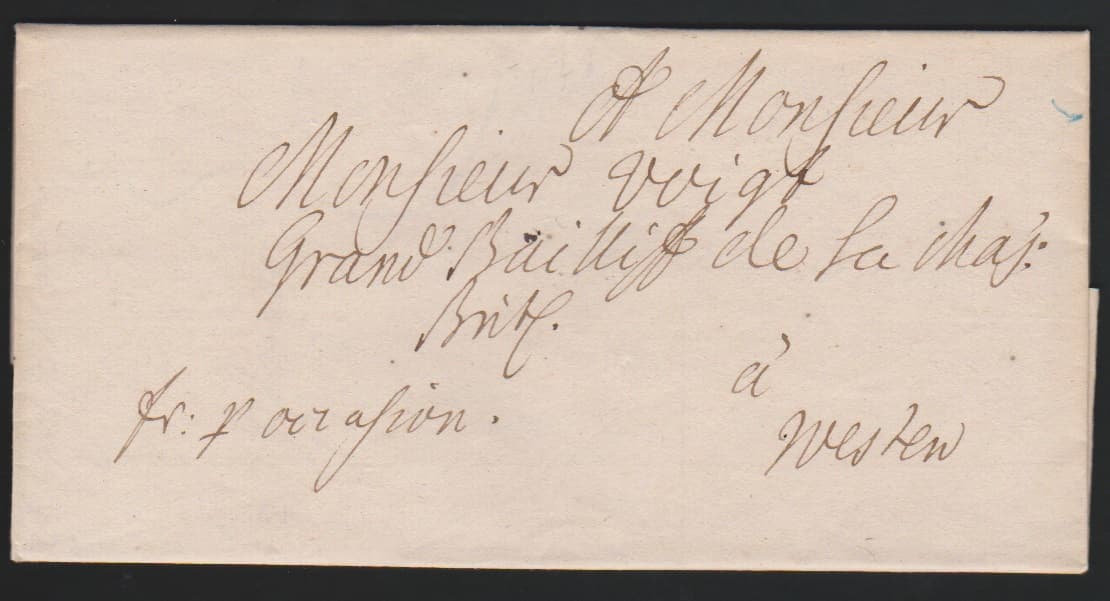 A Monsieur
Monsieur Voigt
Grand Bailliff de Sa Maj:
Brit.
fr: p occasion.
à
Westen